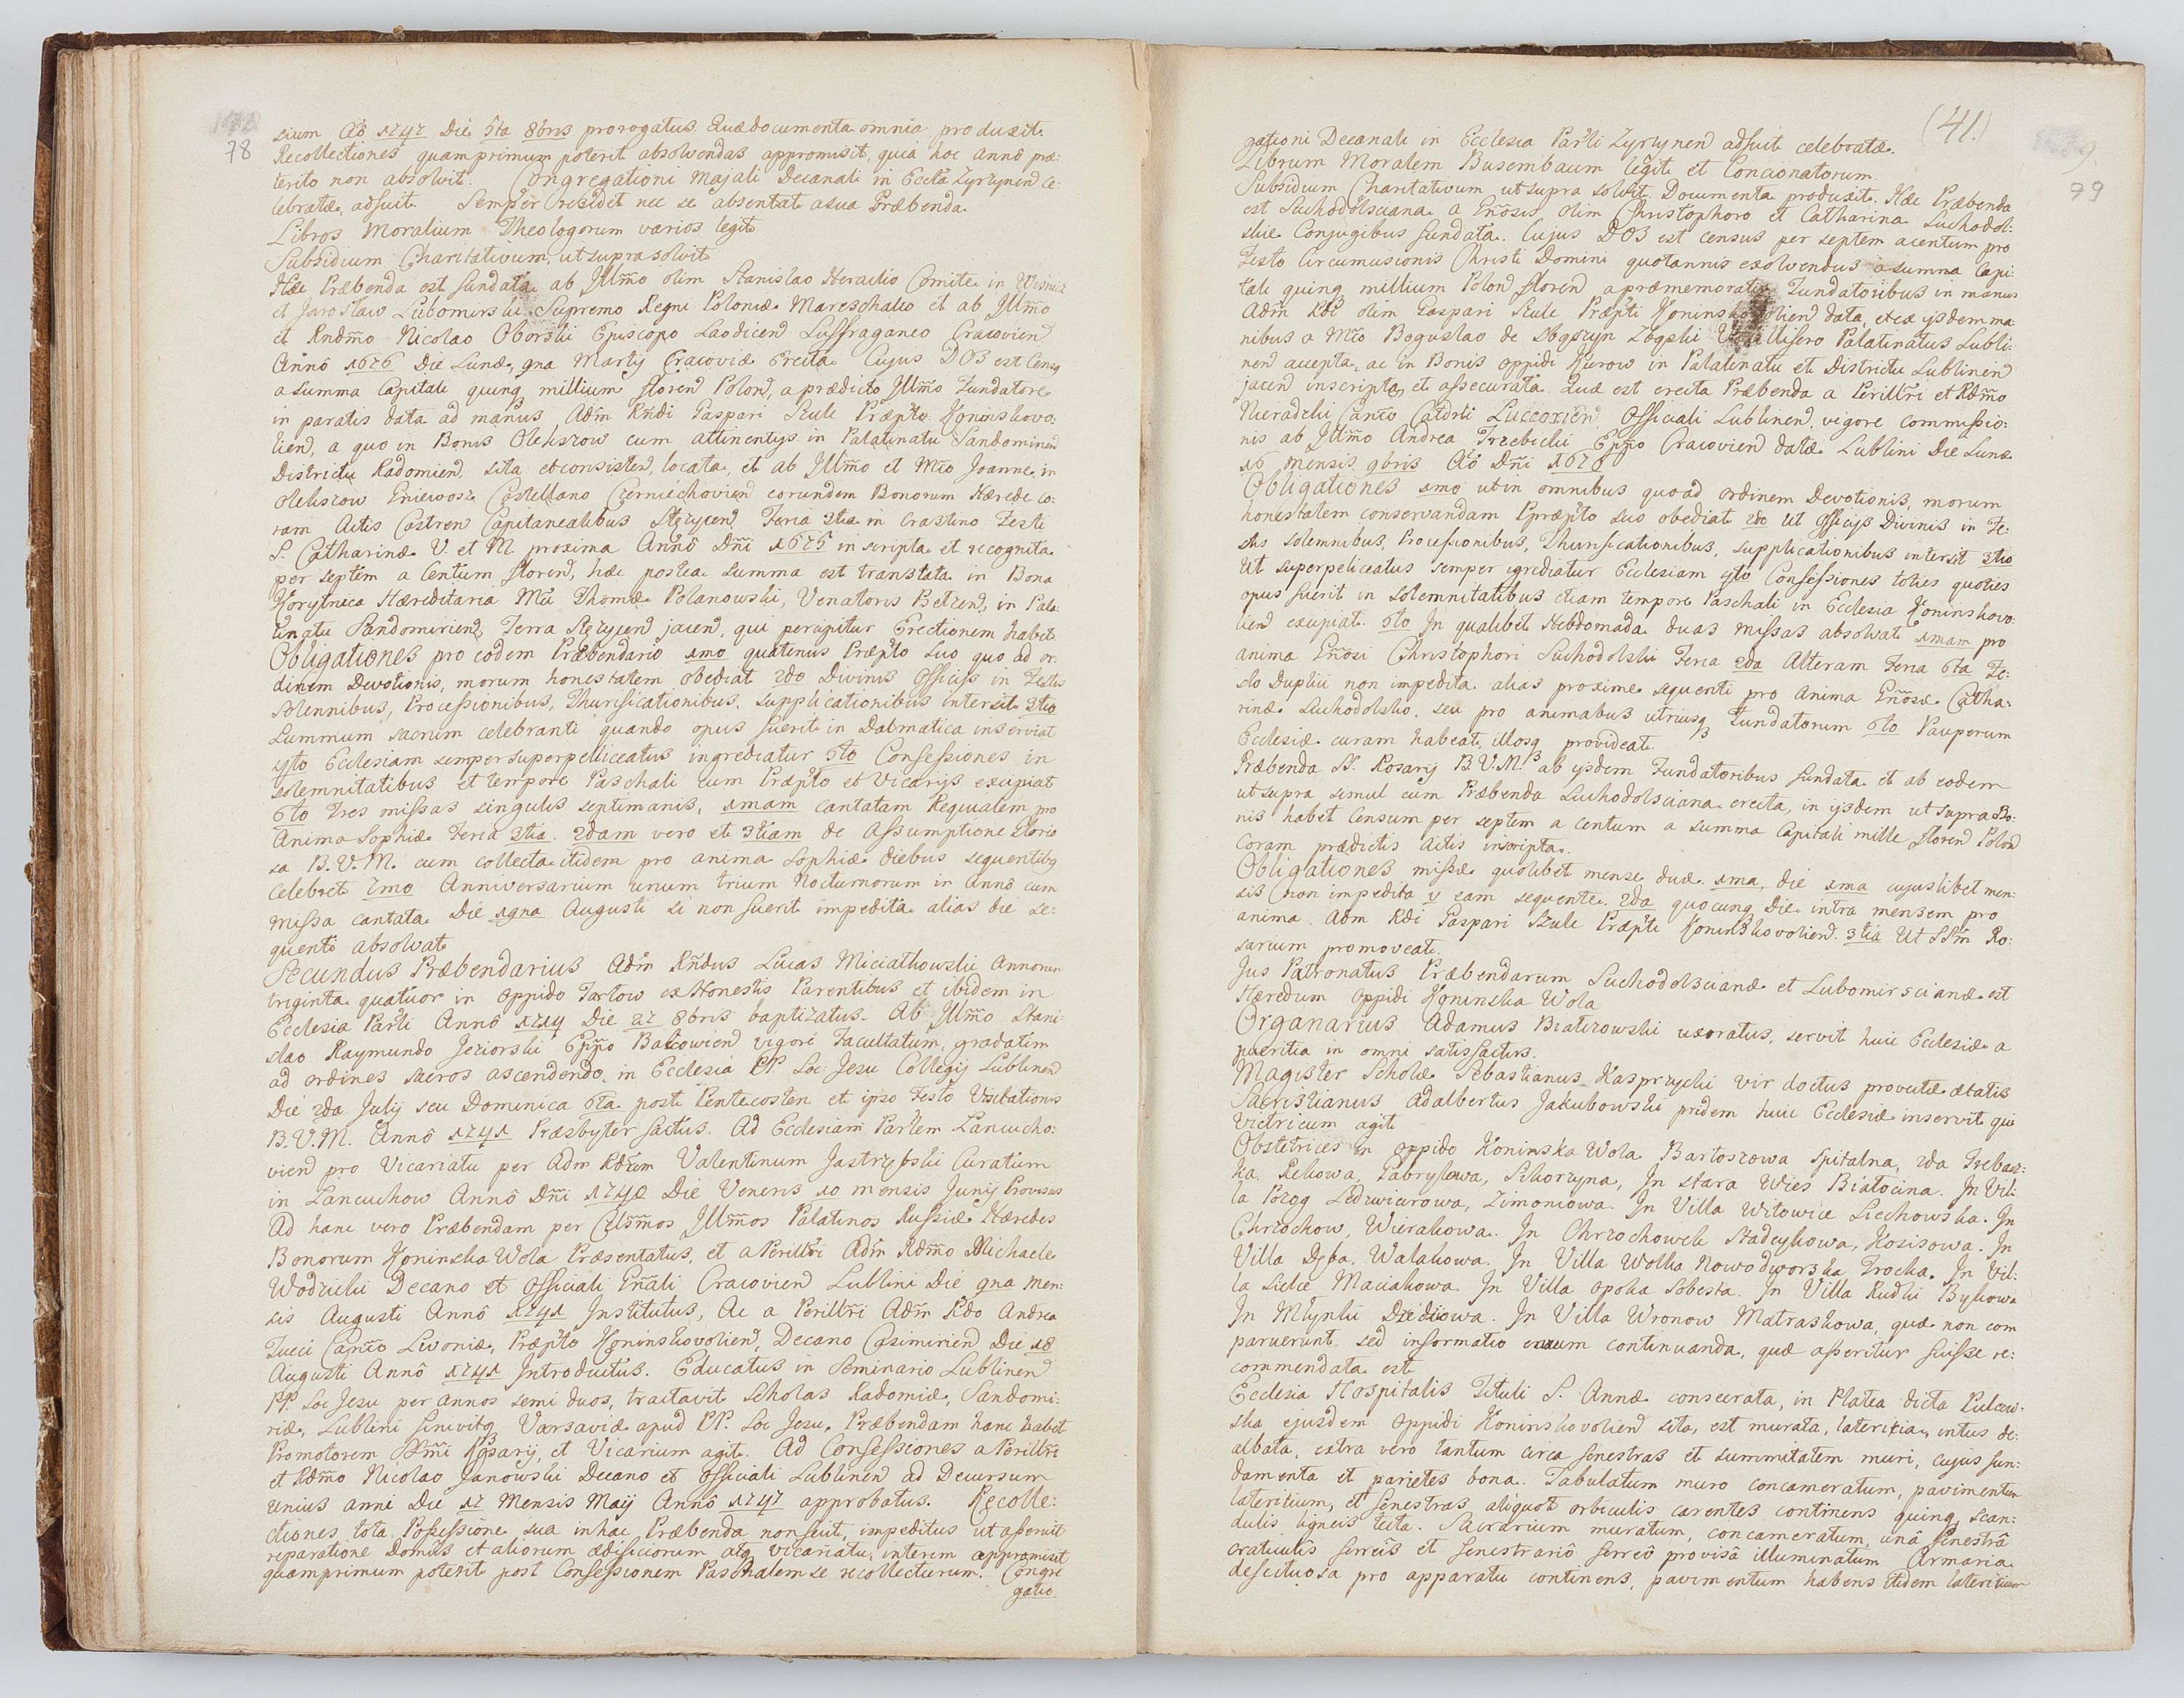 78
sium Aô 1747 Die 5ta 8bris prorogatus. Quæ documenta omnia produxit.
Recollectiones quamprimum poterit absolvendas appromisit, quia hoc annô præ:
terito non absolvit. Congregationi Majali Decanali in Eccla Zyrzynen̄ ce:
lebratæ, adfuit. Semper residet nec se absentat a sua Præbenda.
Libros Moralium Theologorum varios legit.
Subsidium Charitativum, ut supra solvit.
Hæc Præbenda est fundata ab Jllm̃o olim Stanislao Heraclio Comite in Wisnicz
et Jaroslaw Lubomirski Supremo Regni Poloniæ Mareschalco et ab Jllm̃o
et Rndm̃o Nicolao Oborski Episcopo Laodicen̄ Suffraganeo Cracovien̄
Annô 1676 Die Lunæ, 9na Martij Cracoviæ Erecta. Cujus DOS est Censȝ
a summa Capitali quinqȝ millium floren̄ Polon̄, a prædicto Jllm̃o Fundatore
in paratis data ad manus Adm̃ Rñdi Gaspari Szulc Præp̃to Koninskovo:
lien̄, a quo in Bonis Oleksrow cum attinentijs in Palatinatu Sandomirien̄
Districtu Radomien̄, sita et consisten̄, locata, et ab Jllm̃o et Mco Joanne in
Oleksrow Gniewosz Castellano Czerniechovien̄ eorundem Bonorum Hærede co:
ram Actis Castren̄ Capitanealibus Stęzycen̄ Feria 3tia in Crastino Festi
S. Catharinæ V. et M. proxima Annô Dñi 1675 inscripta et recognita
per septem a Centum floren̄, hæc postea summa est translata in Bona
Korytnica Hæreditaria Mci Thomæ Polanowski, Venatoris Belzen̄, in Pala:
tinatu Sandomirien̄ Terra Stęzycen̄ jacen̄, qui percipitur Erectionem habet.
Obligationes pro eodem Præbendario 1mo quatenus Præp̃to suo quo ad or:
dinem Devotionis, morum honestatem obediat 2do Divinis Officijs in Festis
Solennibus, Processionibus, Thurificationibus, Supplicationibus intersit 3tio
Summum sacrum celebranti quando opus fuerit in Dalmatica inserviat
4to Ecclesiam semper superpelliceatus ingrediatur 5to Confessiones in
solemnitatibus et tempore Paschali cum Præp̃to et Vicarijs excipiat
6to Tres missas singulis septimanis, 1mam cantatam Requialem pro
Anima Sophiæ Feria 3tia. 2dam vero et 3tiam de Assumptione Glorio
sa B.V.M. cum collecta itidem pro anima Sophiæ diebus sequentibȝ
Celebret 7mo Anniversarium unum trium Nocturnorum in annô cum
missa cantata Die 19na Augusti si non fuerit impedita alias die se:
quenti absolvat.
Secundus Præbendarius Adm̃ Rñdus Lucas Miciałkowski Annorum
triginta quatuor in Oppido Tarłow ex Honestis Parentibus et ibidem in
Ecclesia Par̃li Annô 1714 Die 27 8bris baptizatus. Ab Jllm̃o Stani
slao Raymundo Jeziorski Epp̃o Bacovien̄ vigore Facultatum, gradatim
ad ordines sacros ascendendo, in Ecclesia PP. Soc: Jesu Collegij Lublinen̄
Die 2da Julij seu Dominica 6ta post Pentecosten et ipso Festo Visitationis
B.V.M. Annô 1741 Præsbyter factus. Ad Ecclesiam Par̃lem Lancucho:
vien̄ pro Vicariatu per Adm Rdum Valentinum Jastrzębski Curatum
in Lancuchow Annô Dñi 1740 Die Veneris 10 mensis Junij Provisus
Ad hanc vero Præbendam per Clsm̃os Jllm̃os Palatinos Russiæ Hæredes
Bonorum Koninska Wola Præsentatus, et a Perillri Adm̃ Rdm̃o Michaele
Wodzicki Decano et Officiali Gñali Cracovien̄ Lublini Die 9na men:
sis Augusti Annô 1741 Institutus, Ac a Perillri Adm̃ Rdo Andrea
Tucci Cañco Livoniæ, Præp̃to Koninskovolien̄, Decano Casimirien̄ Die 18
Augusti Annô 1741 Introductus. Educatus in Seminario Lublinen̄
PP. Soc Jesu per annos semi duos, tractavit Scholas Radomiæ, Sandomi:
riæ, Lublini finivitqȝ Varsaviæ apud PP. Soc Jesu. Præbendam hanc habet
Promotorem SSm̃i Rosarij, et Vicarium agit. Ad Confessiones a Perillri
et Rdm̃o Nicolao Janowski Decano et Officiali Lublinen̄ ad Decursum
Unius anni Die 17 Mensis Maij Annô 1747 approbatus. Recolle:
ctiones tota Possessione sua in hac Præbenda non fecit, impeditus ut asseruit
reparatione Domus et aliorum ædificiorum atqȝ vicariatu, interim appromisit
quamprimum poterit post Confessionem Paschalem se recollecturum. Congre
gatio
(41.)
79
gationi Decanali in Ecclesia Par̃li Zyrzynen̄ adfuit celebratæ.
Librum Moralem Busembaum legit et Concionatorum.
Subsidium Charitativum ut supra solvit. Documenta produxit. Hæc Præbenda
est Suchodolsciana a Gñosis olim Christophoro et Catharina Suchodol:
skie Conjugibus fundata. Cujus DOS est census per septem a centum pro
Festo Circumcisionis Christi Domini quotannis exolvendus a summa Capi:
tali quinqȝ millium Polon̄ floren̄ a præmemoratis Fundatoribus in manus
Adm̃ Rdi olim Gaspari Szulc Præp̃ti Koninskovolien̄ data, et ex ijsdem ma
nibus a Mco Boguslao de Słogszyn Zbąski Vexillifero Palatinatus Lubli:
nen̄ accepta, ac in Bonis oppidi Kurow in Palatinatu et Districtu Lublinen̄
jacen̄ inscripta, et assecurata. Quæ est erecta Præbenda a Perillri et Rdm̃o
Nieradzki Cañco Cat̃drli Luceorien̄, Officiali Lublinen̄, vigore Commissio:
nis ab Jllm̃o Andrea Trzebicki Epp̃o Cracovien̄ datæ Lublini Die Lunæ
16 mensis 9bris Aô Dñi 1676
Obligationes 1mo ut in omnibus quoad ordinem Devotionis, morum
honestatem conservandam Præp̃to suo obediat 2do Ut Officijs Divinis in Fe:
stis solemnibus, Processionibus, Thurificationibus, supplicationibus intersit 3tio
Ut superpeliceatus semper igrediatur Ecclesiam 4to Confessiones toties quoties
opus fuerit in solemnitatibus etiam tempore Paschali in Ecclesia Koninskovo
lien̄ excipiat. 5to Jn qualibet Hebdomada duas missas absolvat 1mam pro
anima Gñosi Christophori Suchodolski Feria 2da Alteram Feria 6ta Fe:
sto Duplici non impedita alias proxime sequenti pro Anima Gñosæ Catha:
rinæ Suchodolsko, seu pro animabus utriusqȝ Fundatorum 6to Pauperum
Ecclesiæ curam habeat, illosqȝ provideat.
Præbenda SS. Rosarij B.V.M. ab ijsdem Fundatoribus fundata et ab eodem
ut supra simul cum Præbenda Suchodolsciana erecta, in ijsdem ut supra Bo:
nis habet Censum per septem a centum a summa Capitali mille floren̄ Polon̄
Coram prædictis Actis inscripta.
Obligationes missæ quolibet mense duæ. 1ma, die 1ma cujuslibet men:
sis (non impedita v eam sequente. 2da quocunqȝ Die intra mensem pro
anima Adm Rdi Gaspari Szulc Præp̃ti Koninskovolien̄. 3tia Ut SSm̃ Ro:
sarium promoveat.
Jus Patronatus Præbendarum Suchodolscianæ et Lubomirscianæ est
Hæredum Oppidi Koninska Wola
Organarius Adamus Białzowski uxoratus, servit huic Ecclesiæ a
pueritia in omni satisfactus.
Magister Scholæ Sebastianus Kasprzycki vir doctus provectæ ætatis
Sacristianus Adalbertus Jakubowski pridem huic Ecclesiæ inservit qui
victricum agit
Obstetrices in oppido Koninska Wola Bartoszowa Spitalna, 2da Trebacz:
ka, Rekowa, Gabrylowa, Sikorzyna, Jn stara Wies Białocina. Jn Vil:
la Pożog Ledzwiczowa, Zimoniowa. Jn Villa Witowice Siechowska. Jn
Chrzochow, Wierakowa. Jn Chrzochowek Stadcykowa, Kozisowa. Jn
Villa Dęba, Walakowa. Jn Villa Wolka Nowodworska Trocka. Jn Vil:
la Sielce Maciakowa. Jn Villa Opoka Sobesta. Jn Villa Rudki Bykowa
Jn Młynki Dziedziowa. Jn Villa Wronow Matraskowa, quæ non com
paruerunt, sed informatio earum continuanda, quæ asseritur fuisse re:
commendata est
Ecclesia Hospitalis Tituli S. Annæ consecrata, in Platea dicta Pulaw:
ska ejusdem Oppidi Koninskovolien̄ sita, est murata, lateritia, intus de:
albata, extra vero tantum circa fenestras et summitatem muri, cujus fun:
damenta et parietes bona. Tabulatum muro concameratum, pavimentum
lateritium, et fenestras aliquot orbiculis carentes continens quinqȝ, scan:
dulis ligneis tecta. Sacrarium muratum, concameratum, unâ fenestrâ
craticulis ferreis et fenestrariô ferreô provisâ illuminatum Armaria
defectuosa pro apparatu continens, pavimentum habens itidem lateritium